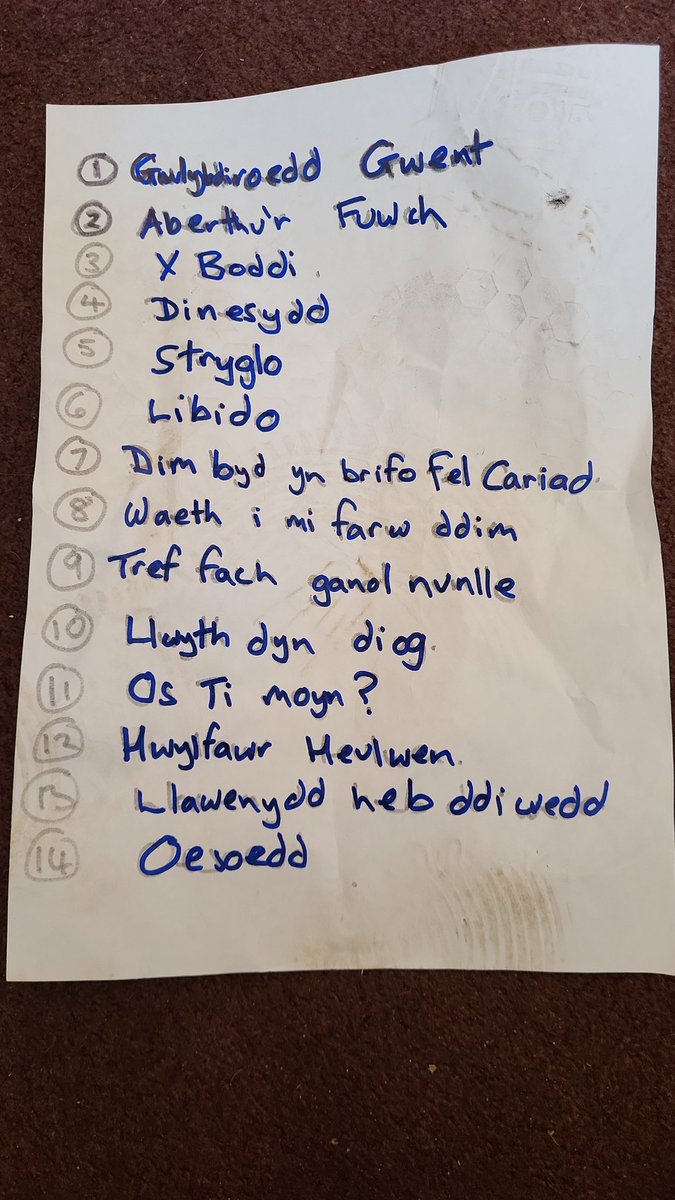 1 Gwlybdiroedd Gwent
2 Aberthu'r Fuwch
3 X Boddi
4 Dinesydd
5 Stryglo
6 Libido
7 Dim byd yn brifo fel Cariad
8 Waeth i mi farw ddim
9 Tref fach ganol nunlle
10 Llwyth dyn diog.
11 Os Ti moyn?
12 Hwylfawr Heulwen
13 Llawenydd heb ddiwedd
14 Oesoedd